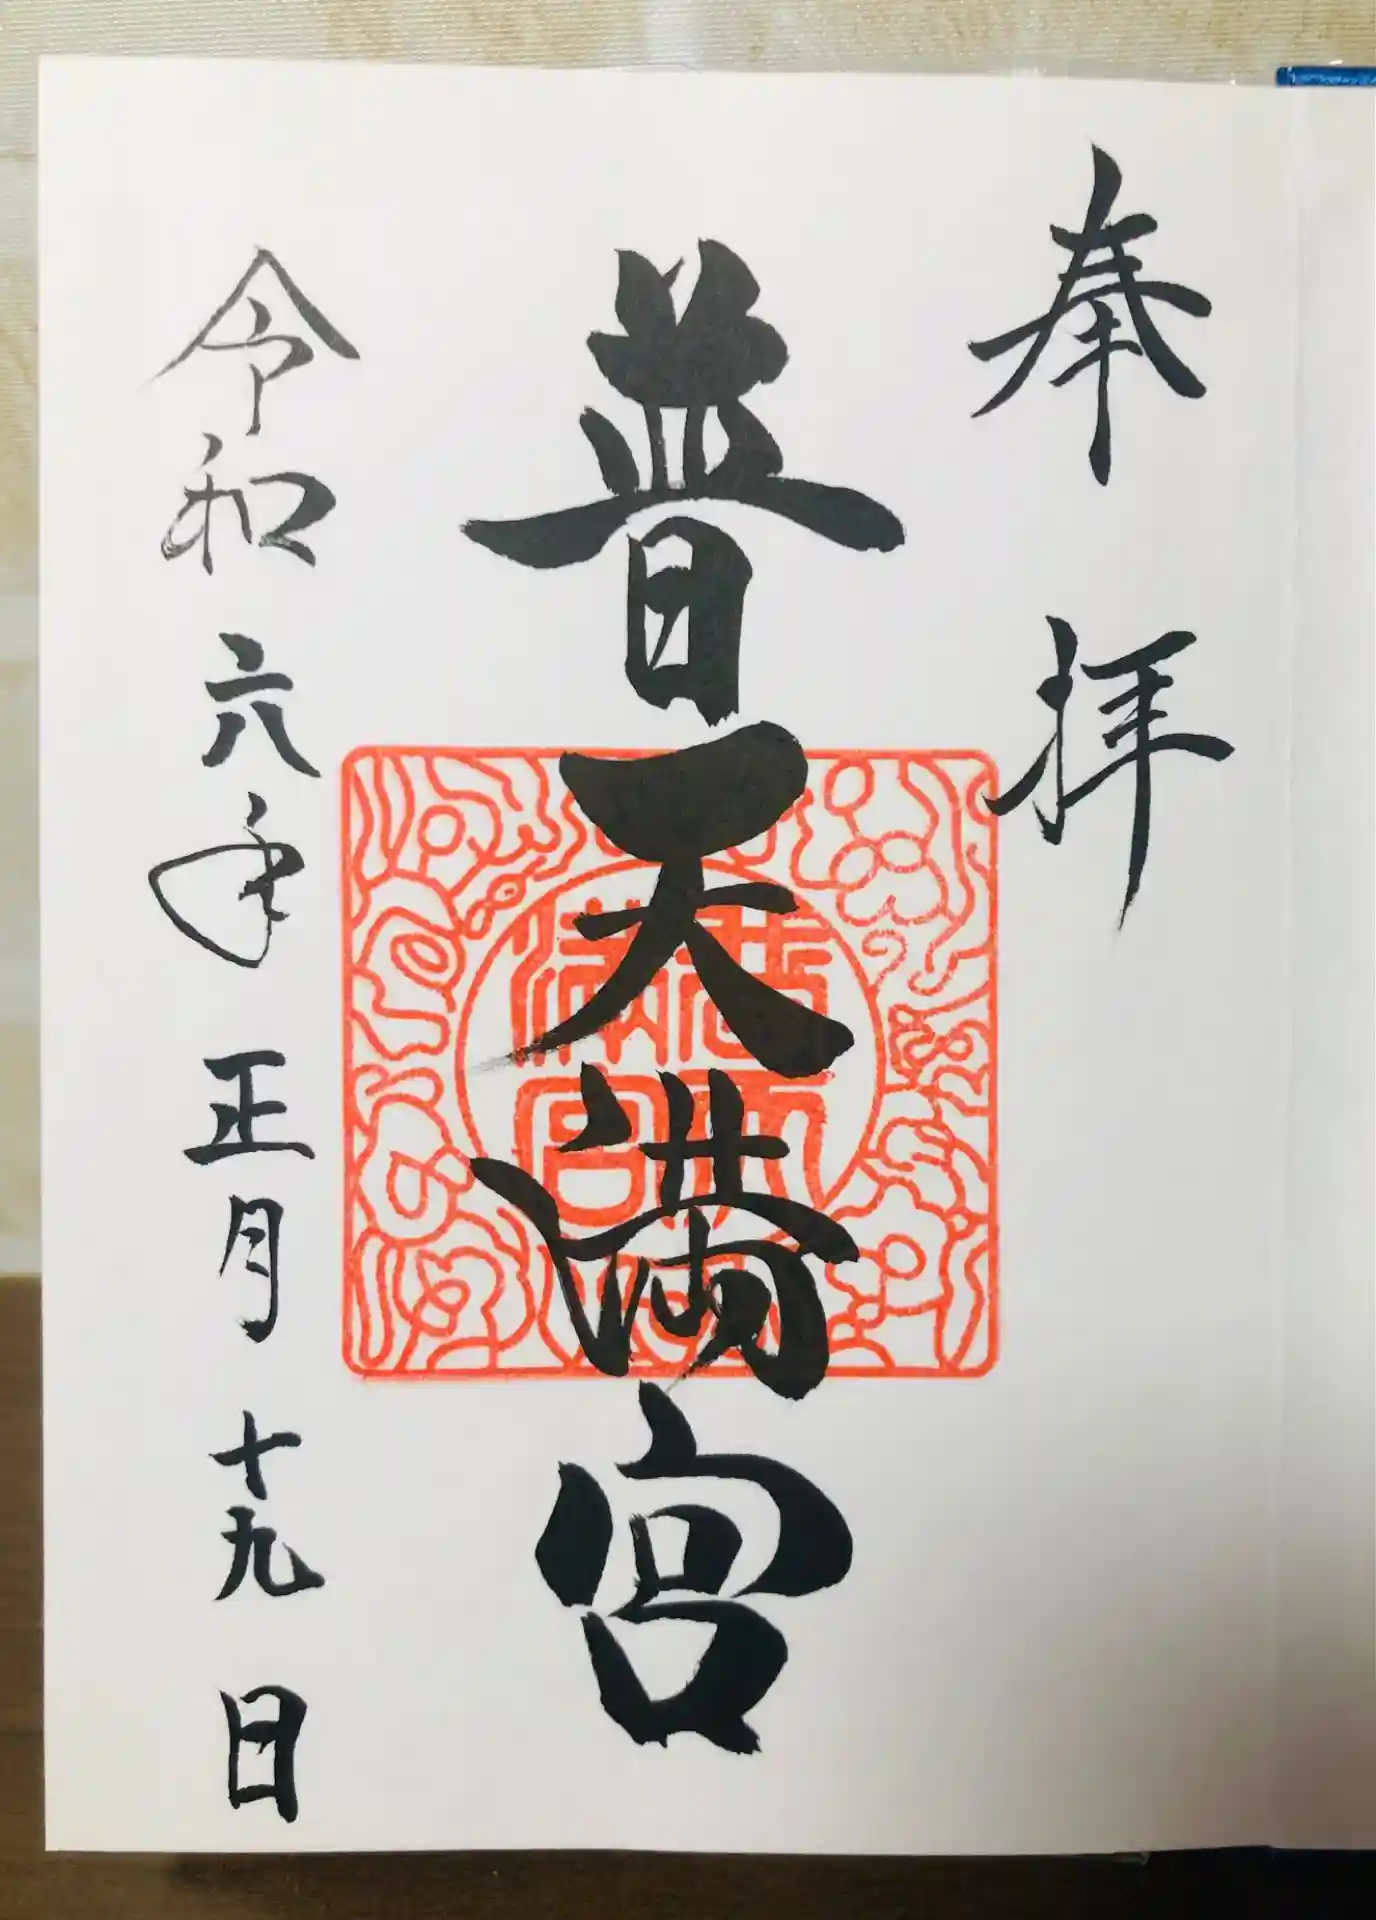 奉拝
普天満宮
令和六年正月十九日
普天満宮